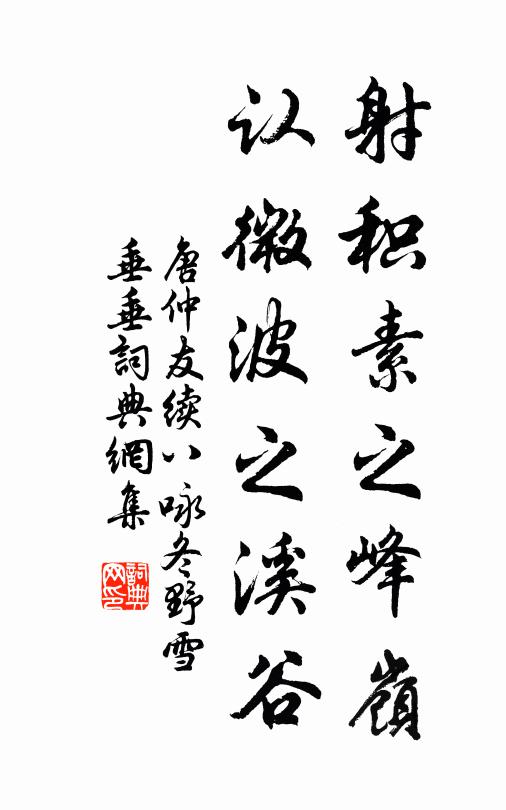 射积素之峰嶺
认微波之溪谷
唐仲友續八咏冬野雪
垂垂詞典網集
詞典网印